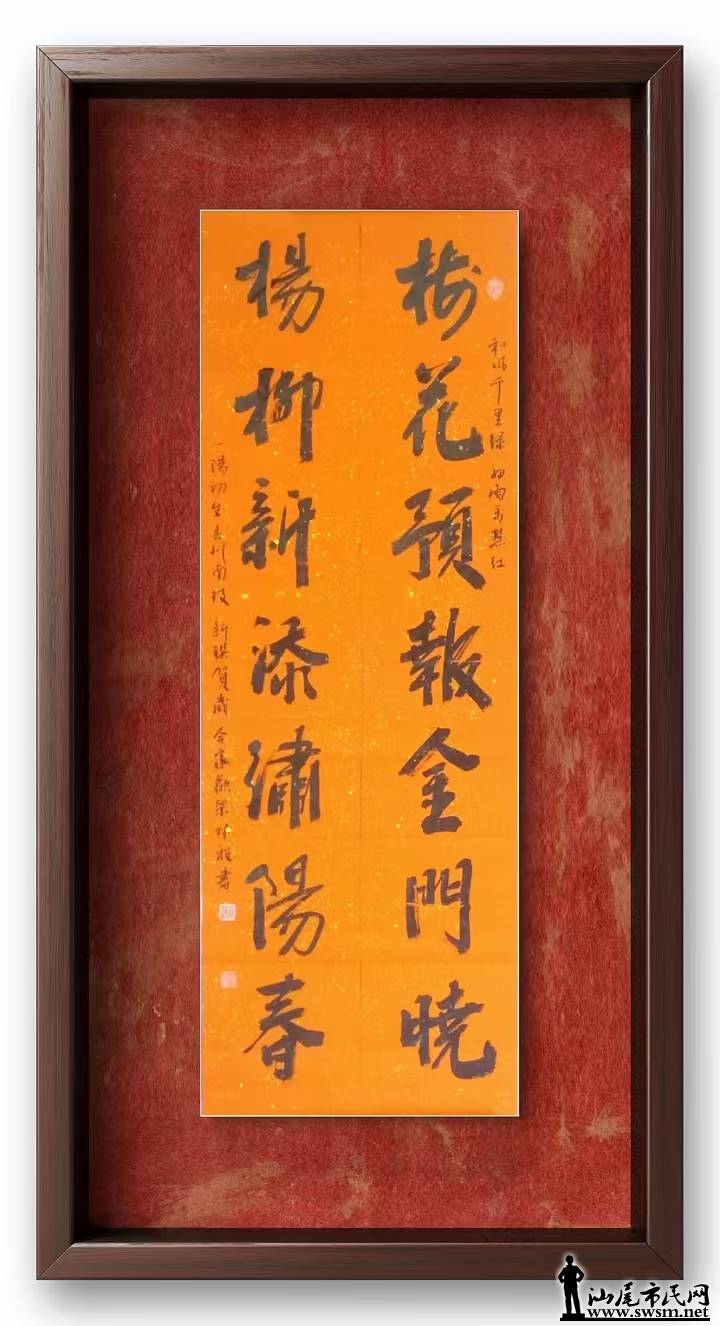 梅花預報金門曉
和風千里綠 細雨萬點紅
楊柳新添繡陽春
一陽初生 南 新 賀歲 書
汕尾市民网
www.swsm.net